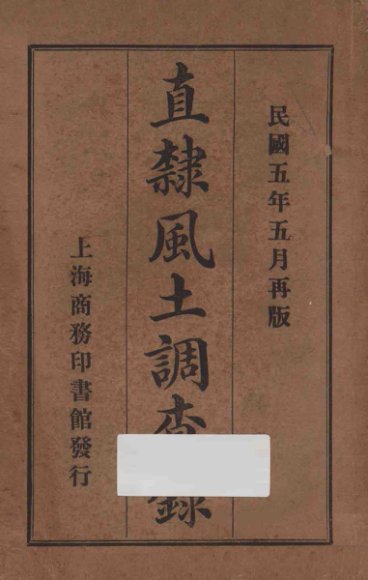 民國五年五月再版
直隸風土調查錄
上海商務印書館發行